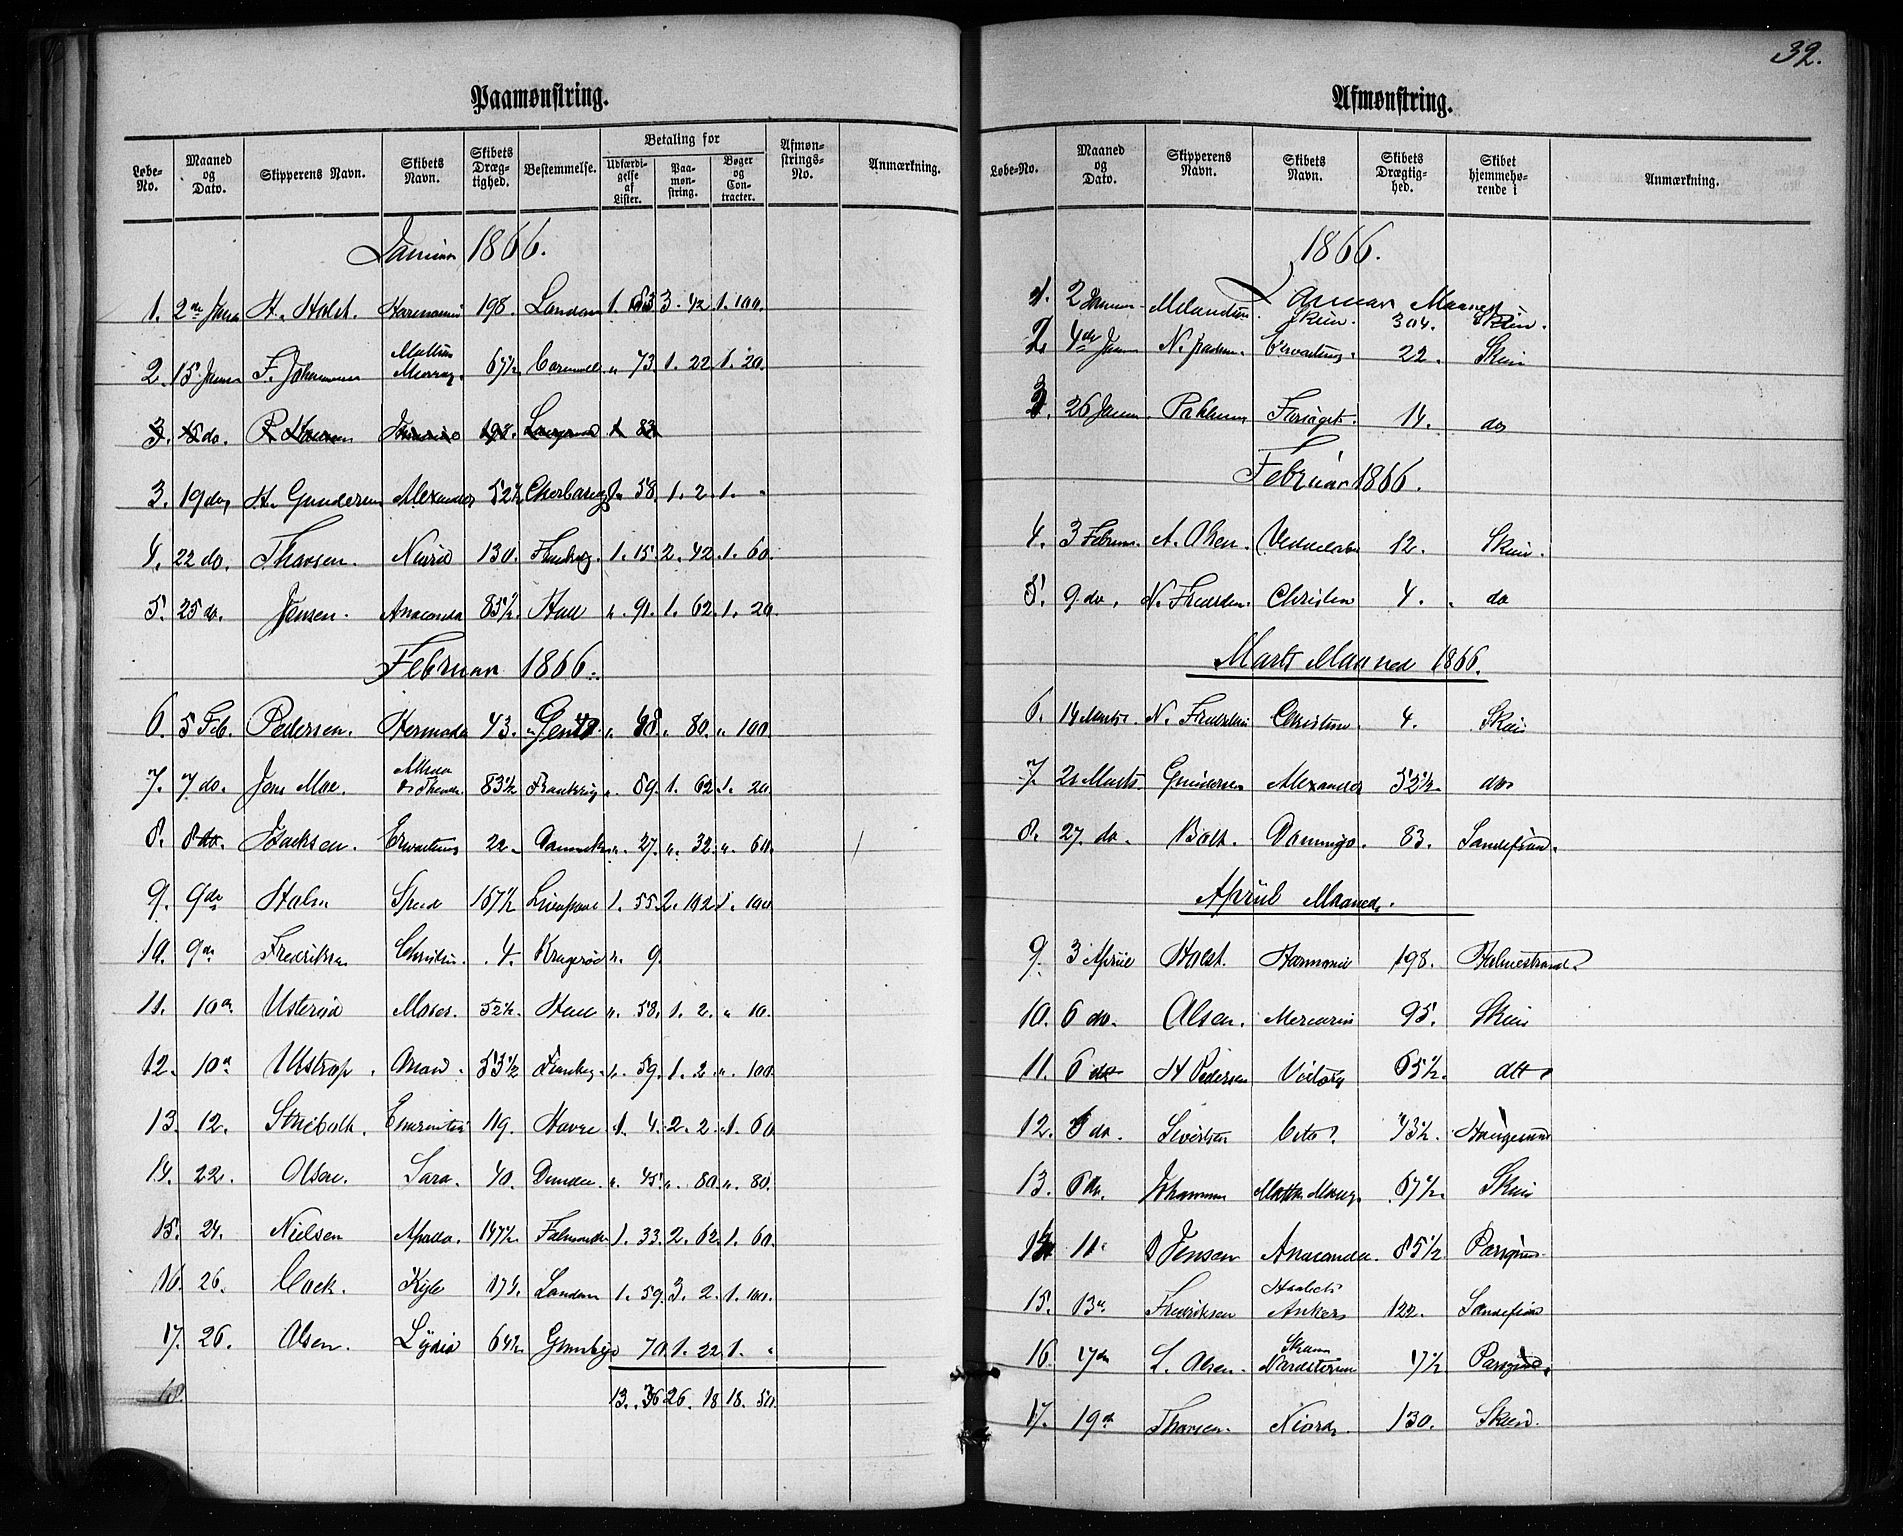 32.
Paamønstring.
Løbe-No. Maaned og Dato. Skipperens Navn. Skibets Navn. Skibets Drægtighed. Bestemmelse. Betaling for Udfærdigelse af Lister. Paamønstring. Bøger og Contracter. Afmønstrings-No. Anmærkning.
Januar 1866.
1. 2den Janu H. Holst. Harmonie 198. London 1. 3. 42 1. 100.
2. 15 Janu F. Johannesen Mathias 67½ " 73. 1. 22 1. 20.
3. 15 do. P. 198. 1 83
3. 19 do, H. Gundersen Alexander 52½ Cherbourg 58. 1. 2. 1. "
4. 22 do. Thorsen. Niord 130. 1. 15 2. 42. 1. 60.
5. 25 do. Jensen. Anaconda 85½. Hull ". 91. 1. 62. 1. 20.
Februar 1866.
6. 5 Feb. Pedersen. Hermoda 43. Gent " 80. " 100
7. 7 do. Jens Moe. 83½ Frankrig ". 89. 1. 62 1. 20
8. 8 do. Isacksen. Erwartung 22. Danmark ". 27. ". 32. ". 60.
9. 9de Holm Speed 167½ Liverpool 1. 55 2. 102 1. 100
10. 9de Fredriksen Christin. 4. Kragerøe ". 9.
11. 10de Usterød Moses. 52½. Hull ". 58. 1. 2. " 10.
12. 10de Ustrop. 53½ ". 59. 1. 2. ". 100.
13. 12. Striboldt. 119. Havre 1. 4. 2. 2. 1. 60
14. 22. Olsen. Sara. 40. Dundee. ". 45. ". 80. ". 80.
15. 24. Nielsen Apollo. 147½. Falmouth 1. 33. 2. 62. 1. 60.
16. 26. Cock. London 1. 59. 3. 2. 1. 100.
17. 26. Olsen. Lydia 64½ Grimbye 70. 1. 22. 1. "
18. 13. 36 26. 18 18. 50.
Afmønstring.
Løbe-No. Maaned og Dato. Skipperens Navn. Skibets Navn. Skibets Drægtighed. Skibet hjemmehørende i Anmærkning.
1866.
Januar Maaned
1. 2 Januar Skien. 304. Skien.
2. 4de Janu Erwartung. 22. Skien
3. 26 Janu Forsøget. 14. do
Februar 1866.
4. 3 Februar. A. Olsen. 12. Skien.
5. 9 do, N. Fredriksen. Christin 4. do
Marts Maaned 1866.
6. 14 Marts. N. Fredriksen Christine. 4. Skien
7. 21 Marts. Gundersen Alexander 52½. do
8. 27. do. Bolt. Domingo. 83. Sandefiord.
Apriil Maaned.
9. 3 Apriil Holst. Harmonie 198. Holmestrand.
10. 6 do. Olsen. Mercurius 95. Skien
11. 6 do H Pedersen Victory 65½. dtt.
12. 6 do. Sivertsen 73½. Haugesund
13. 6 do. Johannesen 67½. Skien
14 11. D Jensen Anaconda. 85½. Porsgrund
15. 13de Fredriksen Haabets Anker 122. Sandefiord
16. 17de L. Olsen. 17½ Porsgrund.
17. 19de Thorsen. Niord. 130. Skien.